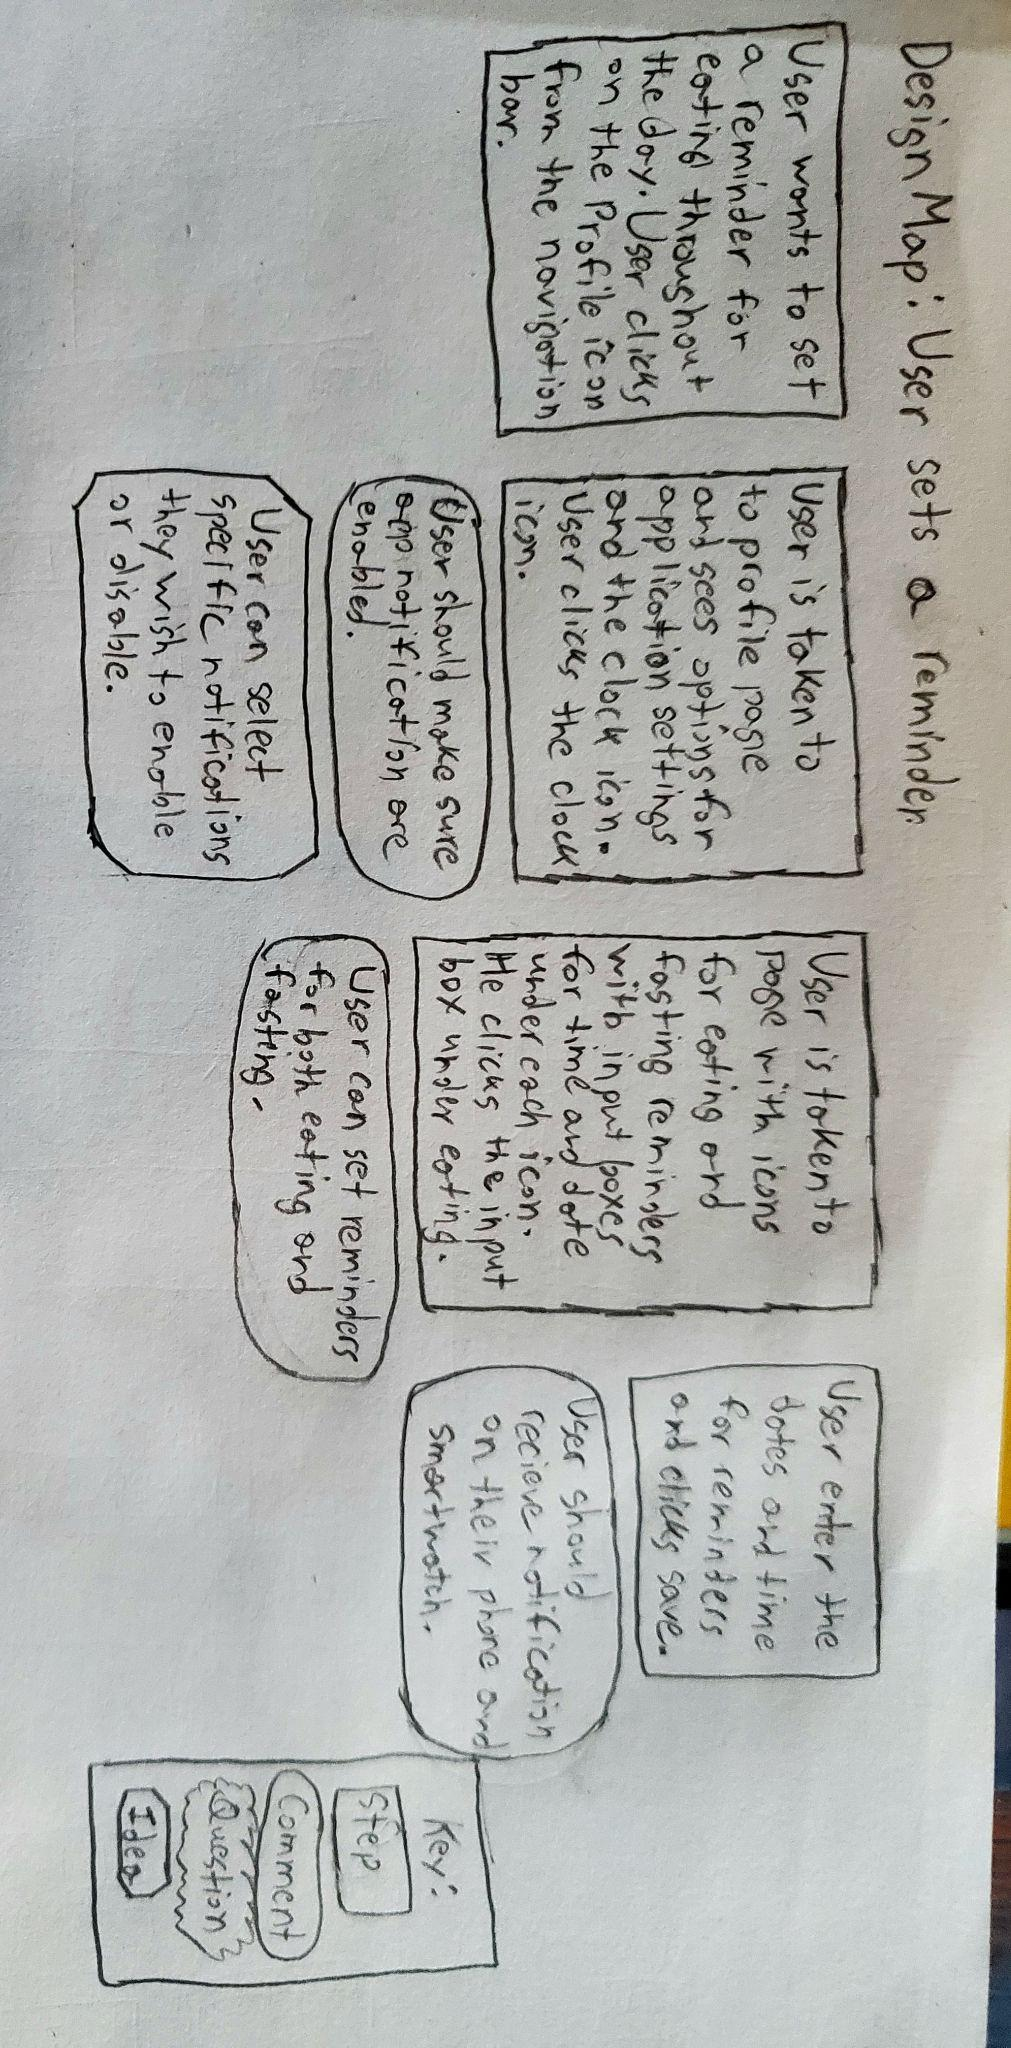 Design Map: User sets a reminder.
User wants to set
a reminder for
eating throughout
the day. User clicks
on the Profile icon
from the navigation
bar.
User is taken to
to profile page
and sees options for
application settings
and the clock icon.
User clicks the clock
icon.
User should make sure
app notification are
enabled.
User can select
specific notifications
they wish to enable
or disable.
User is taken to
page with icons
for eating and
fasting reminders
with input boxes
for time and date
under each icon.
He clicks the input
box under eating.
User can set reminders
for both eating and
fasting.
User enter the
dates and time
for reminders
and clicks save.
User should
recieve notification
on their phone and
smartwatch.
Key:
Step
Comment
Question
Idea